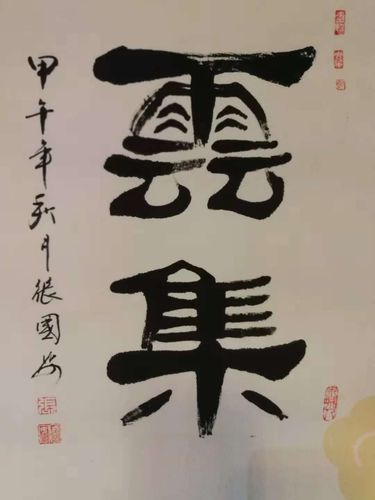 雲集
甲午年秋月張國安